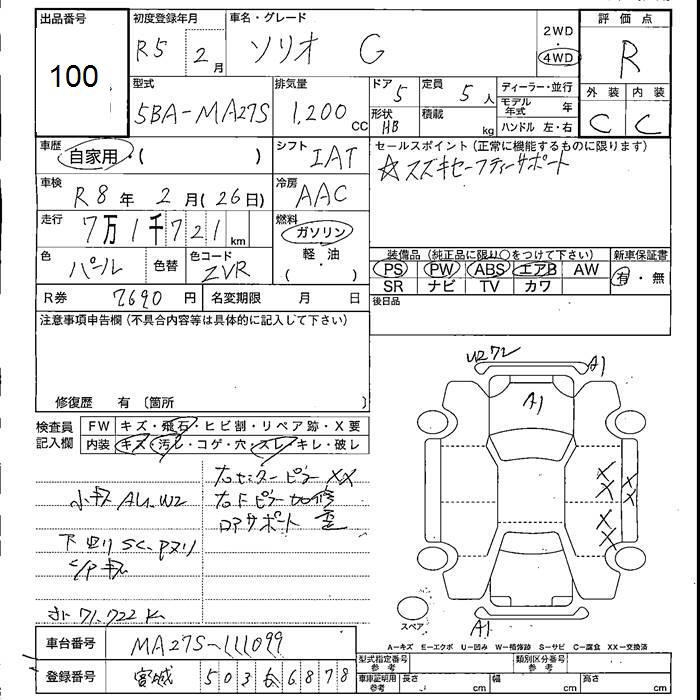 出品番号
100
初度登録年月
R5 2月
車名・グレード
ソリオ G
2WD
4WD
評価点
R
型式
5BA-MA27S
排気量
1,200 CC
ドア 5
形状 HB
定員 5人
積載 kg
ディーラー・並行
モデル年式 年
ハンドル 左・右
外装 内装
C C
車歴
自家用・( )
シフト
IAT
セールスポイント (正常に機能するものに限ります)
☆スズキセーフティーサポート
車検
R8年 2月(26日)
冷房
AAC
走行
7万1千721km
燃料
ガソリン
軽・油
( )
色
パール
色替
色コード
ZVR
装備品 (純正品に限り○をつけて下さい)
新車保証書
PS PW ABS エアB AW
有・無
SR ナビ TV カワ
R券 7690円
名変期限 月 日
後日品
注意事項申告欄 (不具合内容等は具体的に記入して下さい)
修復歴 有 〔箇所 〕
検査員
記入欄
FW キズ・飛石・ヒビ割・リペア跡・X要
内装 キズ・汚レ・コゲ・穴・スレ・キレ・破レ
右センターピラー XX
小キズ AU.W2
ロアサポート 歪
下回り SC.Pヌリ
71,722K
U2 72
A1
A1
A1
スペア
A-キズ E-エクボ U-凹み W-補修跡 S-サビ C-腐食 XX-交換済
車台番号
MA27S-111099
型式指定番号 参考
類別区分番号 参考
登録番号
宮城 503 6878
車庫証明用 参考
長さ cm 幅 cm 高さ cm